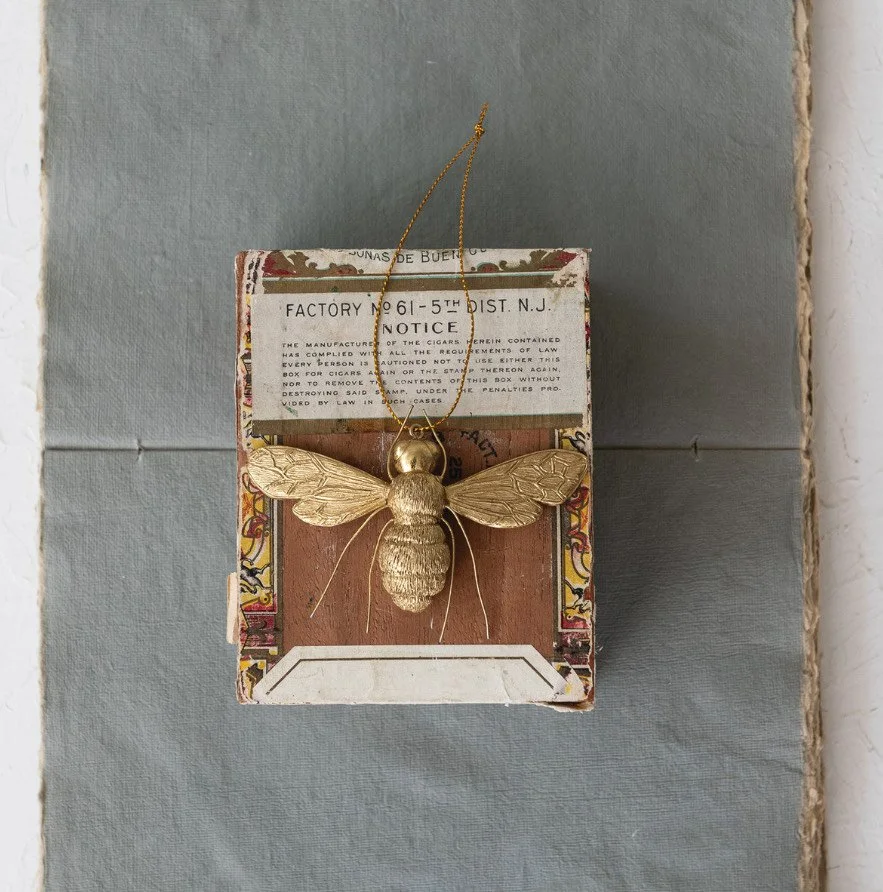 DE BUEN
FACTORY Nº 61-5TH DIST. N.J.
NOTICE
THE MANUFACTURER OF THE CIGARS HEREIN CONTAINED
HAS COMPLIED WITH ALL THE REQUIREMENTS OF LAW
EVERY PERSON IS CAUTIONED NOT TO USE EITHER THIS
BOX FOR CIGARS AGAIN OR THE STAMP THEREON AGAIN,
NOR TO REMOVE THE CONTENTS OF THIS BOX WITHOUT
DESTROYING SAID STAMP, UNDER THE PENALTIES PRO-
VIDED BY LAW IN SUCH CASES
FACT.
25